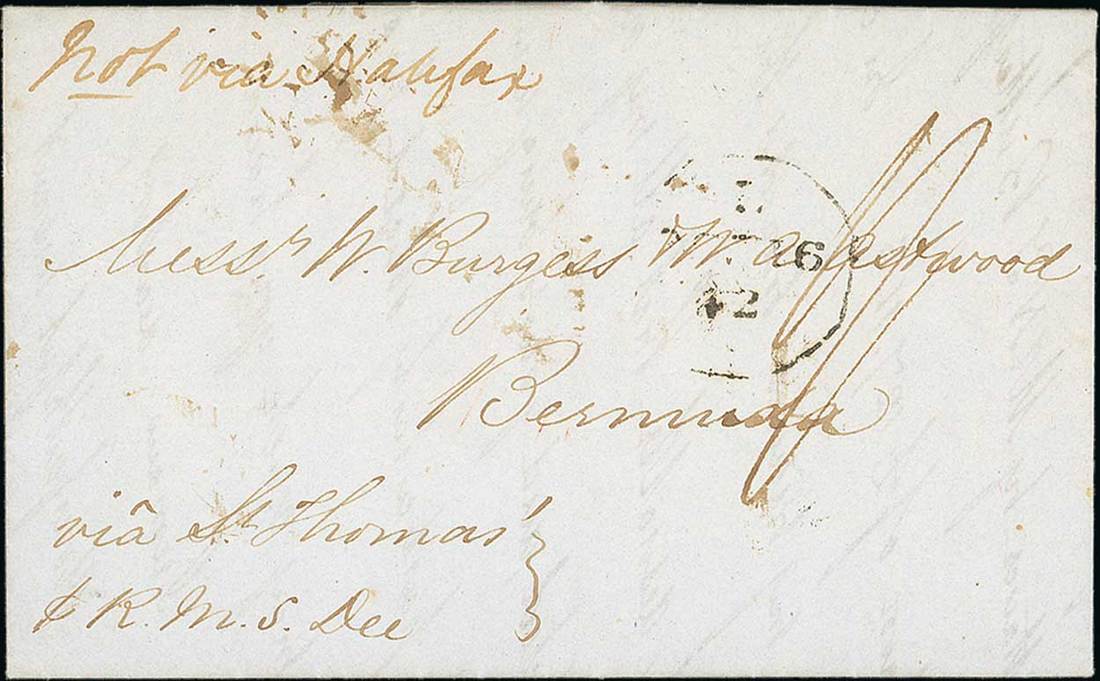 Not via Halifax
Messrs W. Burgess & W. Eastwood
Bermuda
via St. Thomas'
p R. M. S. Dee
L
26
42